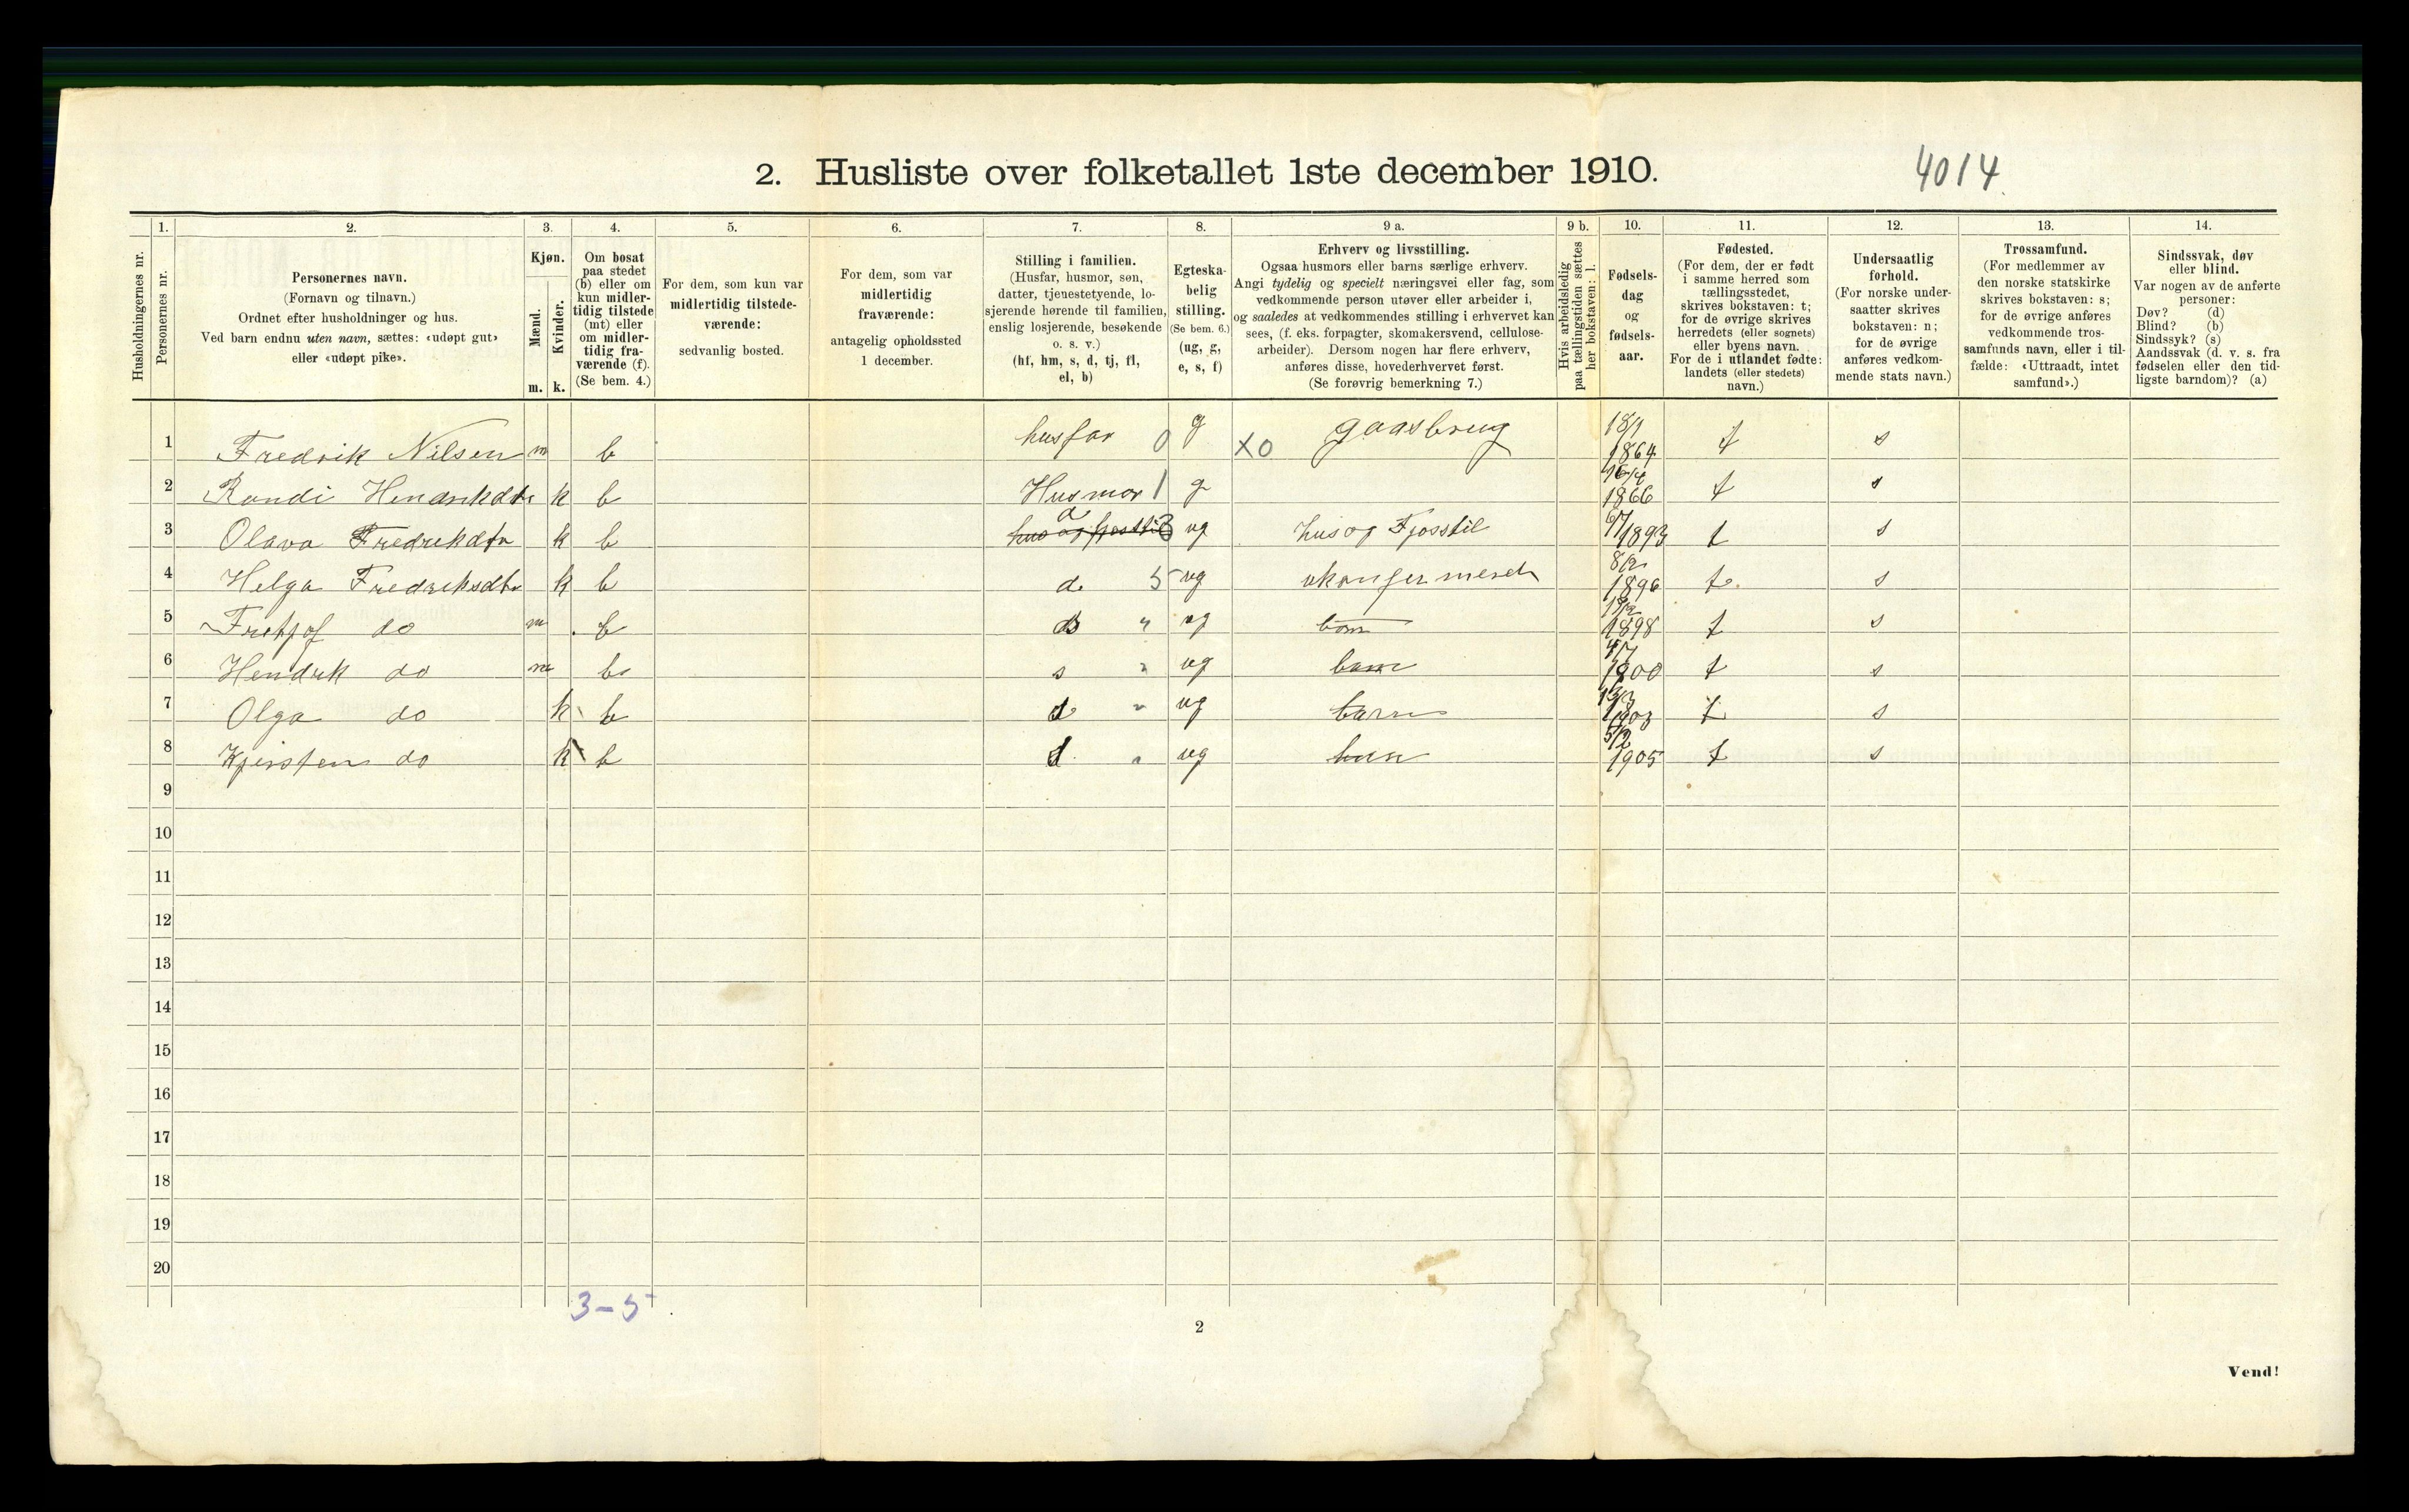 2. Husliste over folketallet 1ste december 1910.
4014
Husholdningernes nr.
1.
Personernes nr.
2.
Personernes navn.
(Fornavn og tilnavn.)
Ordnet efter husholdninger og hus.
Ved barn endnu uten navn, sættes: «udøpt gut»
eller «udøpt pike».
3.
Kjøn.
Mænd.
Kvinder.
m. k.
4.
Om bosat
paa stedet
(b) eller om
kun midler-
tidig tilstede
(mt) eller
om midler-
tidig fra-
værende (f).
(Se bem. 4.)
5.
For dem, som kun var
midlertidig tilstede-
værende:
sedvanlig bosted.
6.
For dem, som var
midlertidig
fraværende:
antagelig opholdssted
1 december.
7.
Stilling i familien.
(Husfar, husmor, søn,
datter, tjenestetyende, lo-
sjerende hørende til familien,
enslig losjerende, besøkende
o. s. v.)
(hf, hm, s, d, tj, fl,
el, b)
8.
Egteska-
belig
stilling.
(Se bem. 6.)
(ug, g,
e, s, f)
9 a.
Erhverv og livsstilling.
Ogsaa husmors eller barns særlige erhverv.
Angi tydelig og specielt næringsvei eller fag, som
vedkommende person utøver eller arbeider i,
og saaledes at vedkommendes stilling i erhvervet kan
sees, (f. eks. forpagter, skomakersvend, cellulose-
arbeider). Dersom nogen har flere erhverv,
anføres disse, hovederhvervet først.
(Se forøvrig bemerkning 7.)
9 b.
Hvis arbeidsledig
paa tællingstiden sættes
her bokstaven: l.
10.
Fødsels-
dag
og
fødsels-
aar.
11.
Fødested.
(For dem, der er født
i samme herred som
tællingsstedet,
skrives bokstaven: t;
for de øvrige skrives
herredets (eller sognets)
eller byens navn.
For de i utlandet fødte:
landets (eller stedets)
navn.)
12.
Undersaatlig
forhold.
(For norske under-
saatter skrives
bokstaven: n;
for de øvrige
anføres vedkom-
mende stats navn.)
13.
Trossamfund.
(For medlemmer av
den norske statskirke
skrives bokstaven: s;
for de øvrige anføres
vedkommende tros-
samfunds navn, eller i til-
fælde: «Uttraadt, intet
samfund».)
14.
Sindssvak, døv
eller blind.
Var nogen av de anførte
personer:
Døv? (d)
Blind? (b)
Sindssyk? (s)
Aandssvak (d. v. s. fra
fødselen eller den tid-
ligste barndom)? (a)
1 Fredrik Nilsen m b husfar 0 g X0 gaasbrug 18/1 1864 t s
2 Randi Hendrikdtr k b Husmor 1 g 16/4 1866 t s
3 Olava Fredrikdtr k b hus og fjosstil d 3 ug hus og Fjosstil 6/7 1893 t s
4 Helga Fredriksdtr k b d. 5 ug ukonfermerdt 8/2 1896 t. s
5 Fretjof do m b s " ug barn 1898 t s
6 Hendrik do m b s " ug barn 4/7 1900 t s
7 Olga do k b d " ug barn 13/3 1903 t s
8 Kjersten do k b d " ug barn 5/2 1905 t s
9
10
11
12
13
14
15
16
17
18
19
20
3-5
2
Vend!